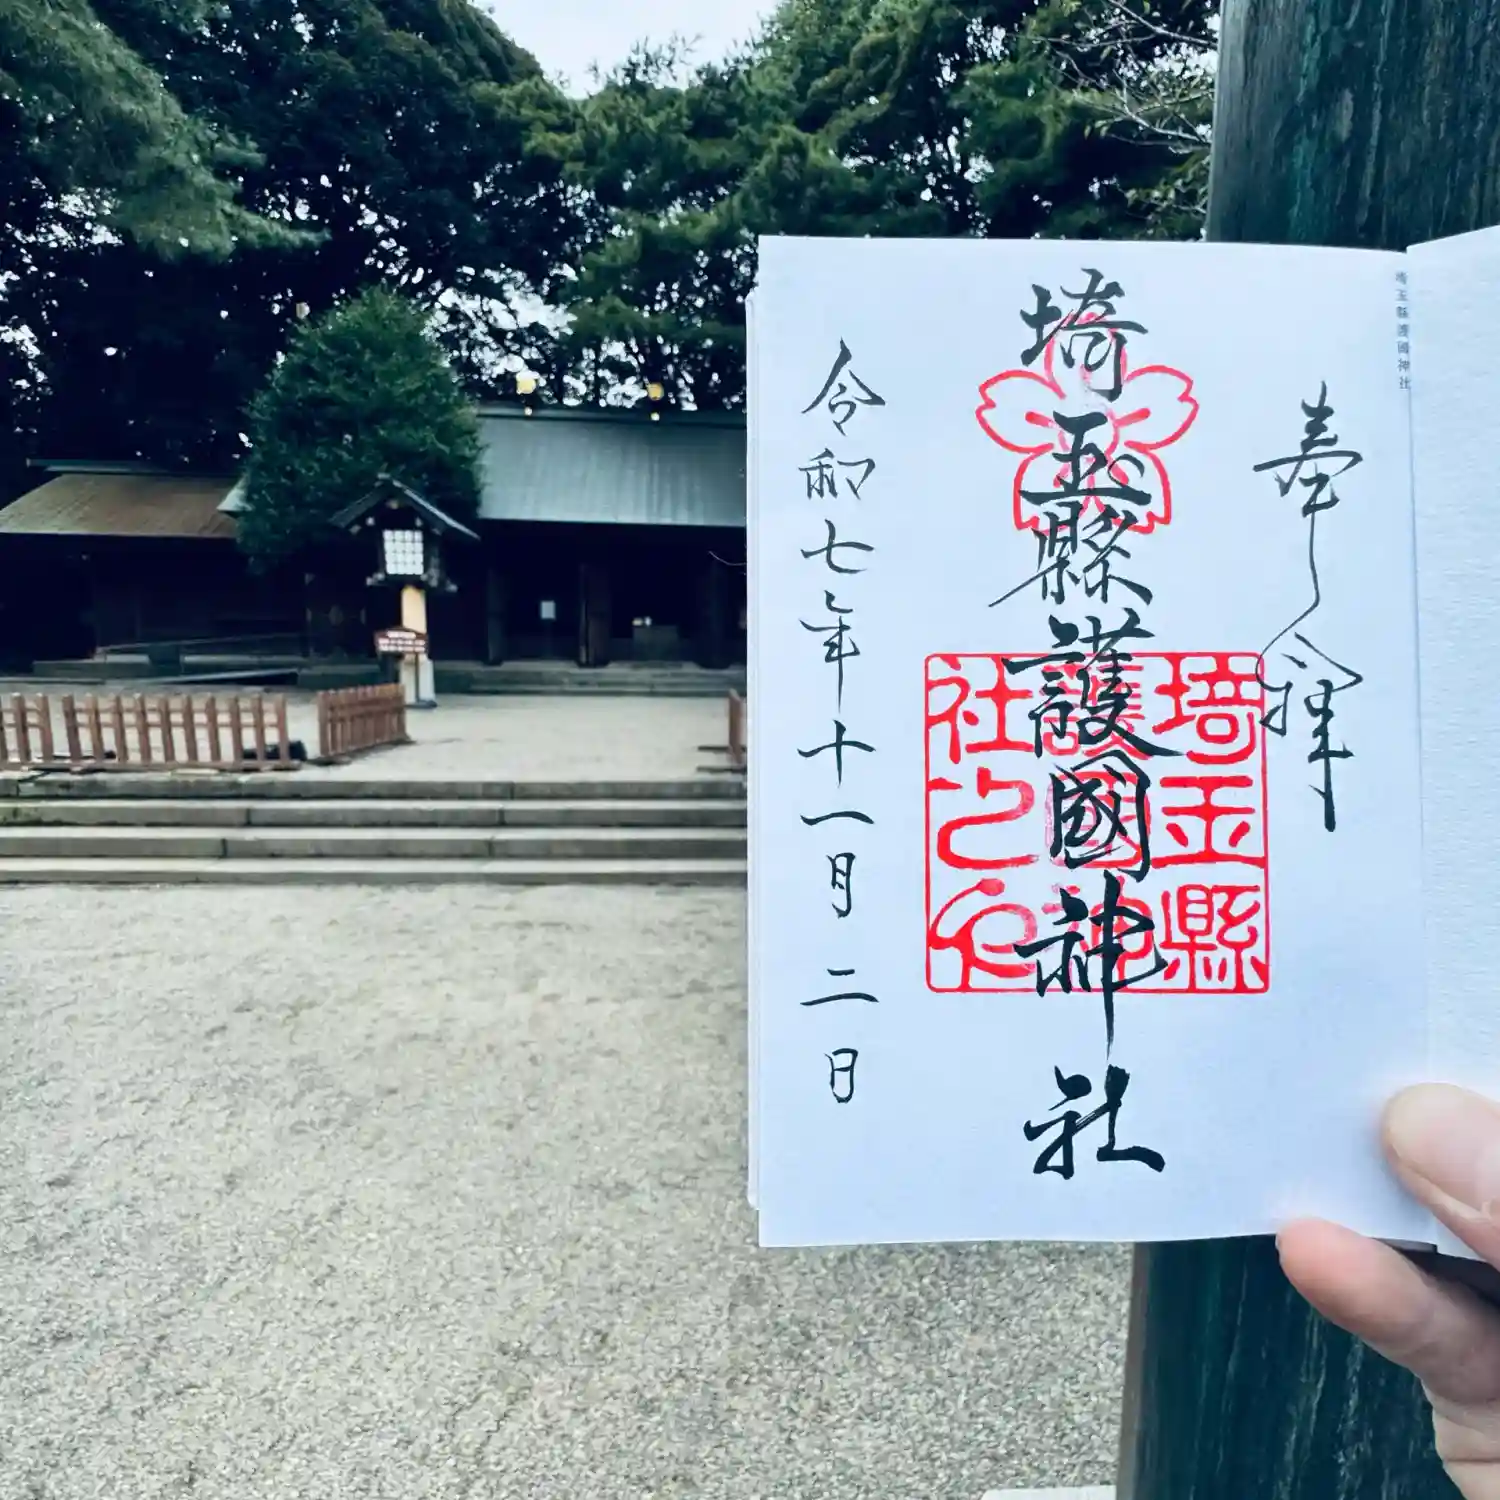 埼玉縣護國神社
奉拝
埼玉縣護國神社
埼玉縣
護國神
社之印
令和七年十一月二日